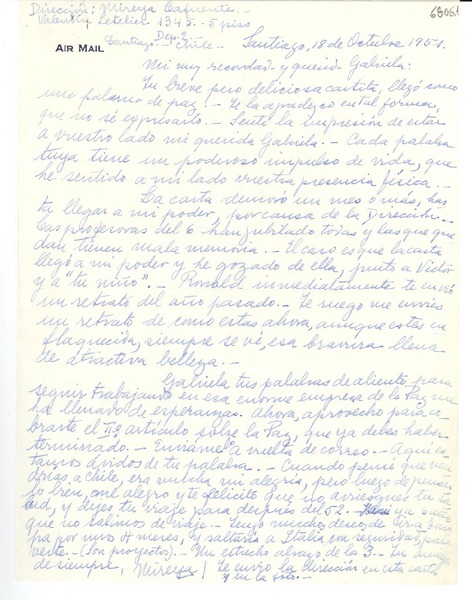 Dirección: Mireya Lafuente.
Valentín Letelier 1345 - 5 piso
Dep. 2
AIR MAIL
Santiago - Chile. Santiago, 18 de Octubre 1951.
Mi muy recordada y querida Gabriela:
Tu breve pero deliciosa cartita, llegó como
una paloma de paz. - Te la agradezco en tal forma,
que no sé expresarlo. - Sentí la impresión de estar
a vuestro lado mi querida Gabriela. - Cada palabra
tuya tiene un poderoso impulso de vida, que
he sentido a mi lado vuestra presencia física. -
La carta demoró un mes o más, has
ta llegar a mi poder, por causa de la Dirección. -
Las profesoras del 6 han jubilado todas y las que que
dan tienen mala memoria. - El caso es que la carta
llegó a mi poder y he gozado de ella, junto a Victor
y a "tu niño". - Ronald inmediatamente te envió
un retrato del año pasado. - Te ruego me envies
un retrato de como estas ahora, aunque estes en
flaquecida, siempre se vé, esa bravura llena
de atractiva belleza. -
Gabriela tus palabras de aliento para
seguir trabajando en esa enorme empresa de la Paz, me
ha llenado de esperanzas. Ahora, aprovecho para co
brarte el IIº artículo sobre la Paz, que ya debes haber
terminado. - Enviámelo a vuelta de correo. - Aqui es
tamos ávidos de tu palabra. - Cuando pensé que ven
drías a Chile, era mucha mi alegría, pero luego de pensar
lo bien, me alegro y te felicito que no arriesgues tu sa
lud, y dejes tu viaje para después del 52. - ya
que no salimos de viaje. - Tengo mucho deseo de ir a Euro
pa por unos 4 meses, y saltaría a Italia con seguridad, para
verte. - (Son proyectos). - Un estrecho abrazo de los 3. - Tu amiga
de siempre, Mireya / Te envio la dirección en esta carta
y en la